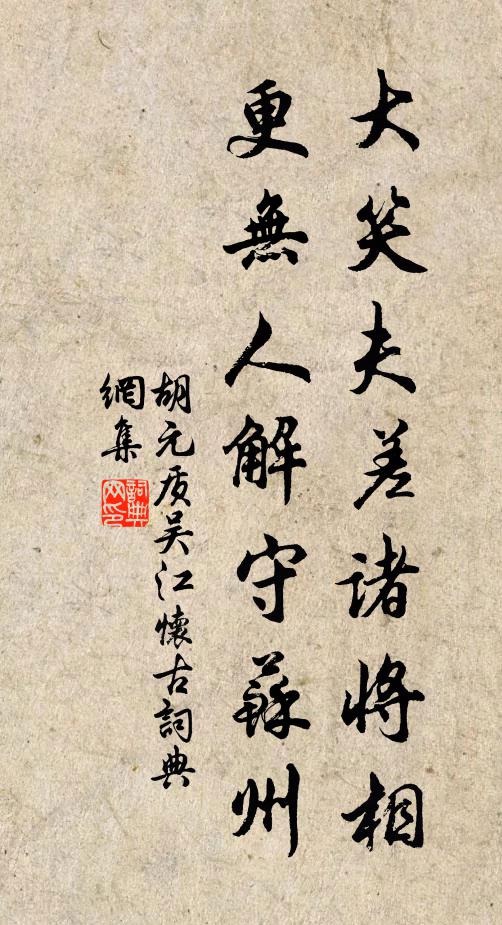 大笑夫差諸將相
更無人解守蘇州
胡元质吴江懷古詞典
網集
詞典
网印